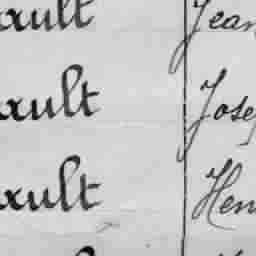 ault Jean
ault Josep
ault Hen